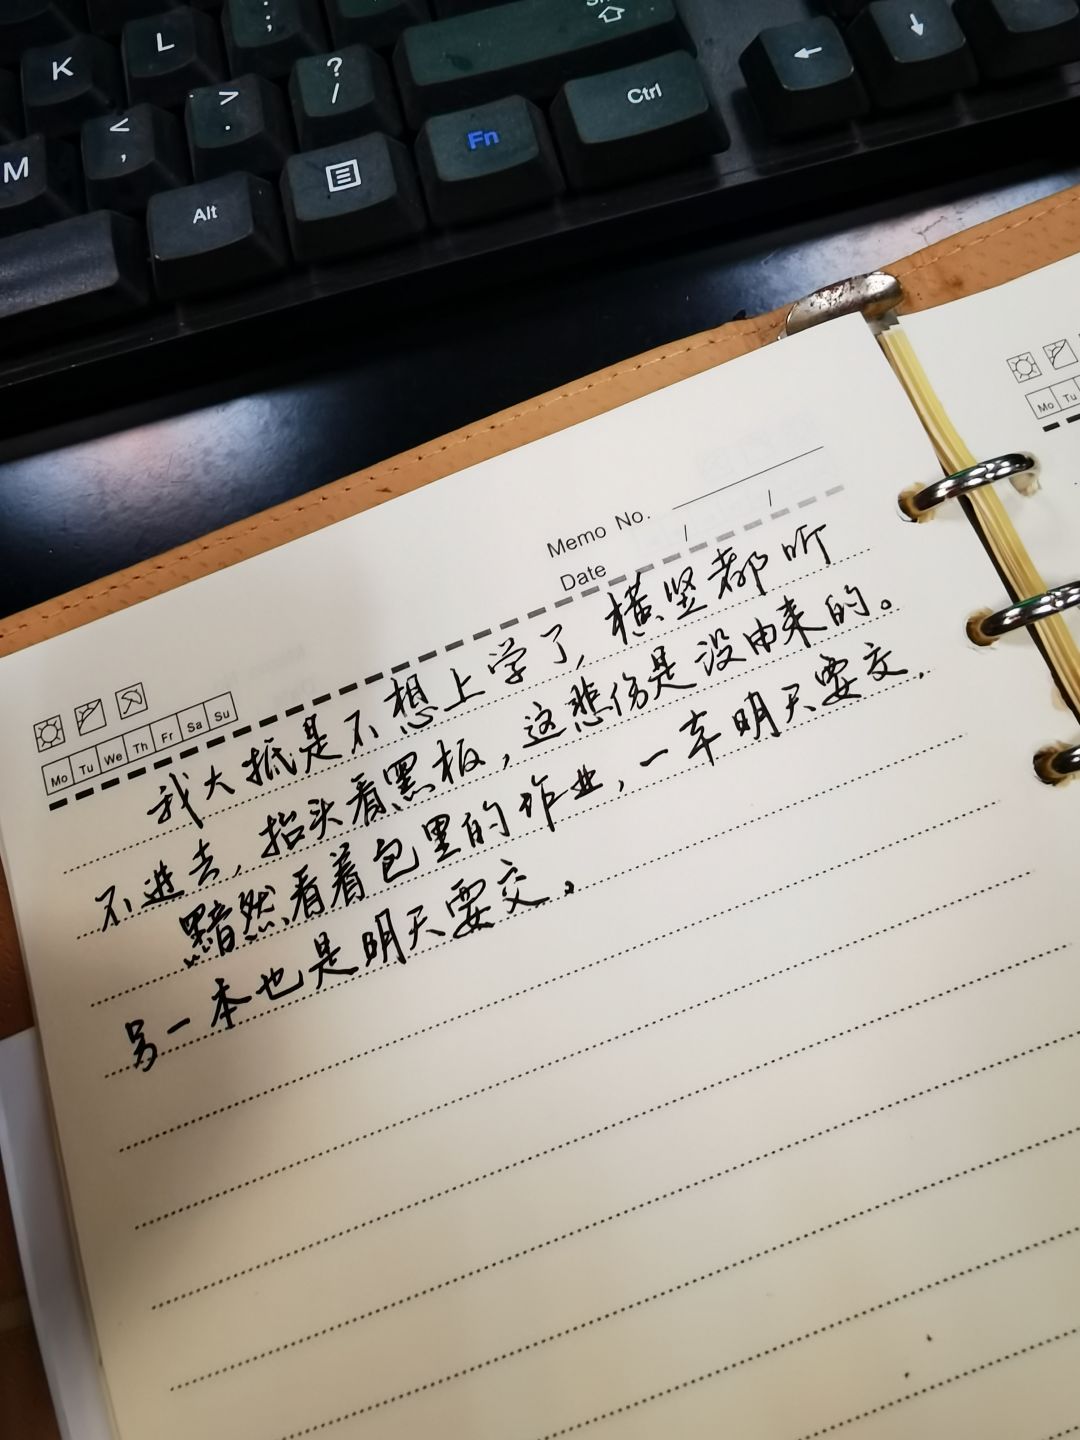 Sh
;
L
K
?
/
>
.
<
,
M
Ctrl
Fn
Alt
Memo No.
Date / /
Mo Tu We Th Fr Sa Su
Mo Tu
我大抵是不想上学了，横竖都听
不进去，抬头看黑板，这悲伤是没由来的。
黯然看着包里的作业，一本明天要交，
另一本也是明天要交。